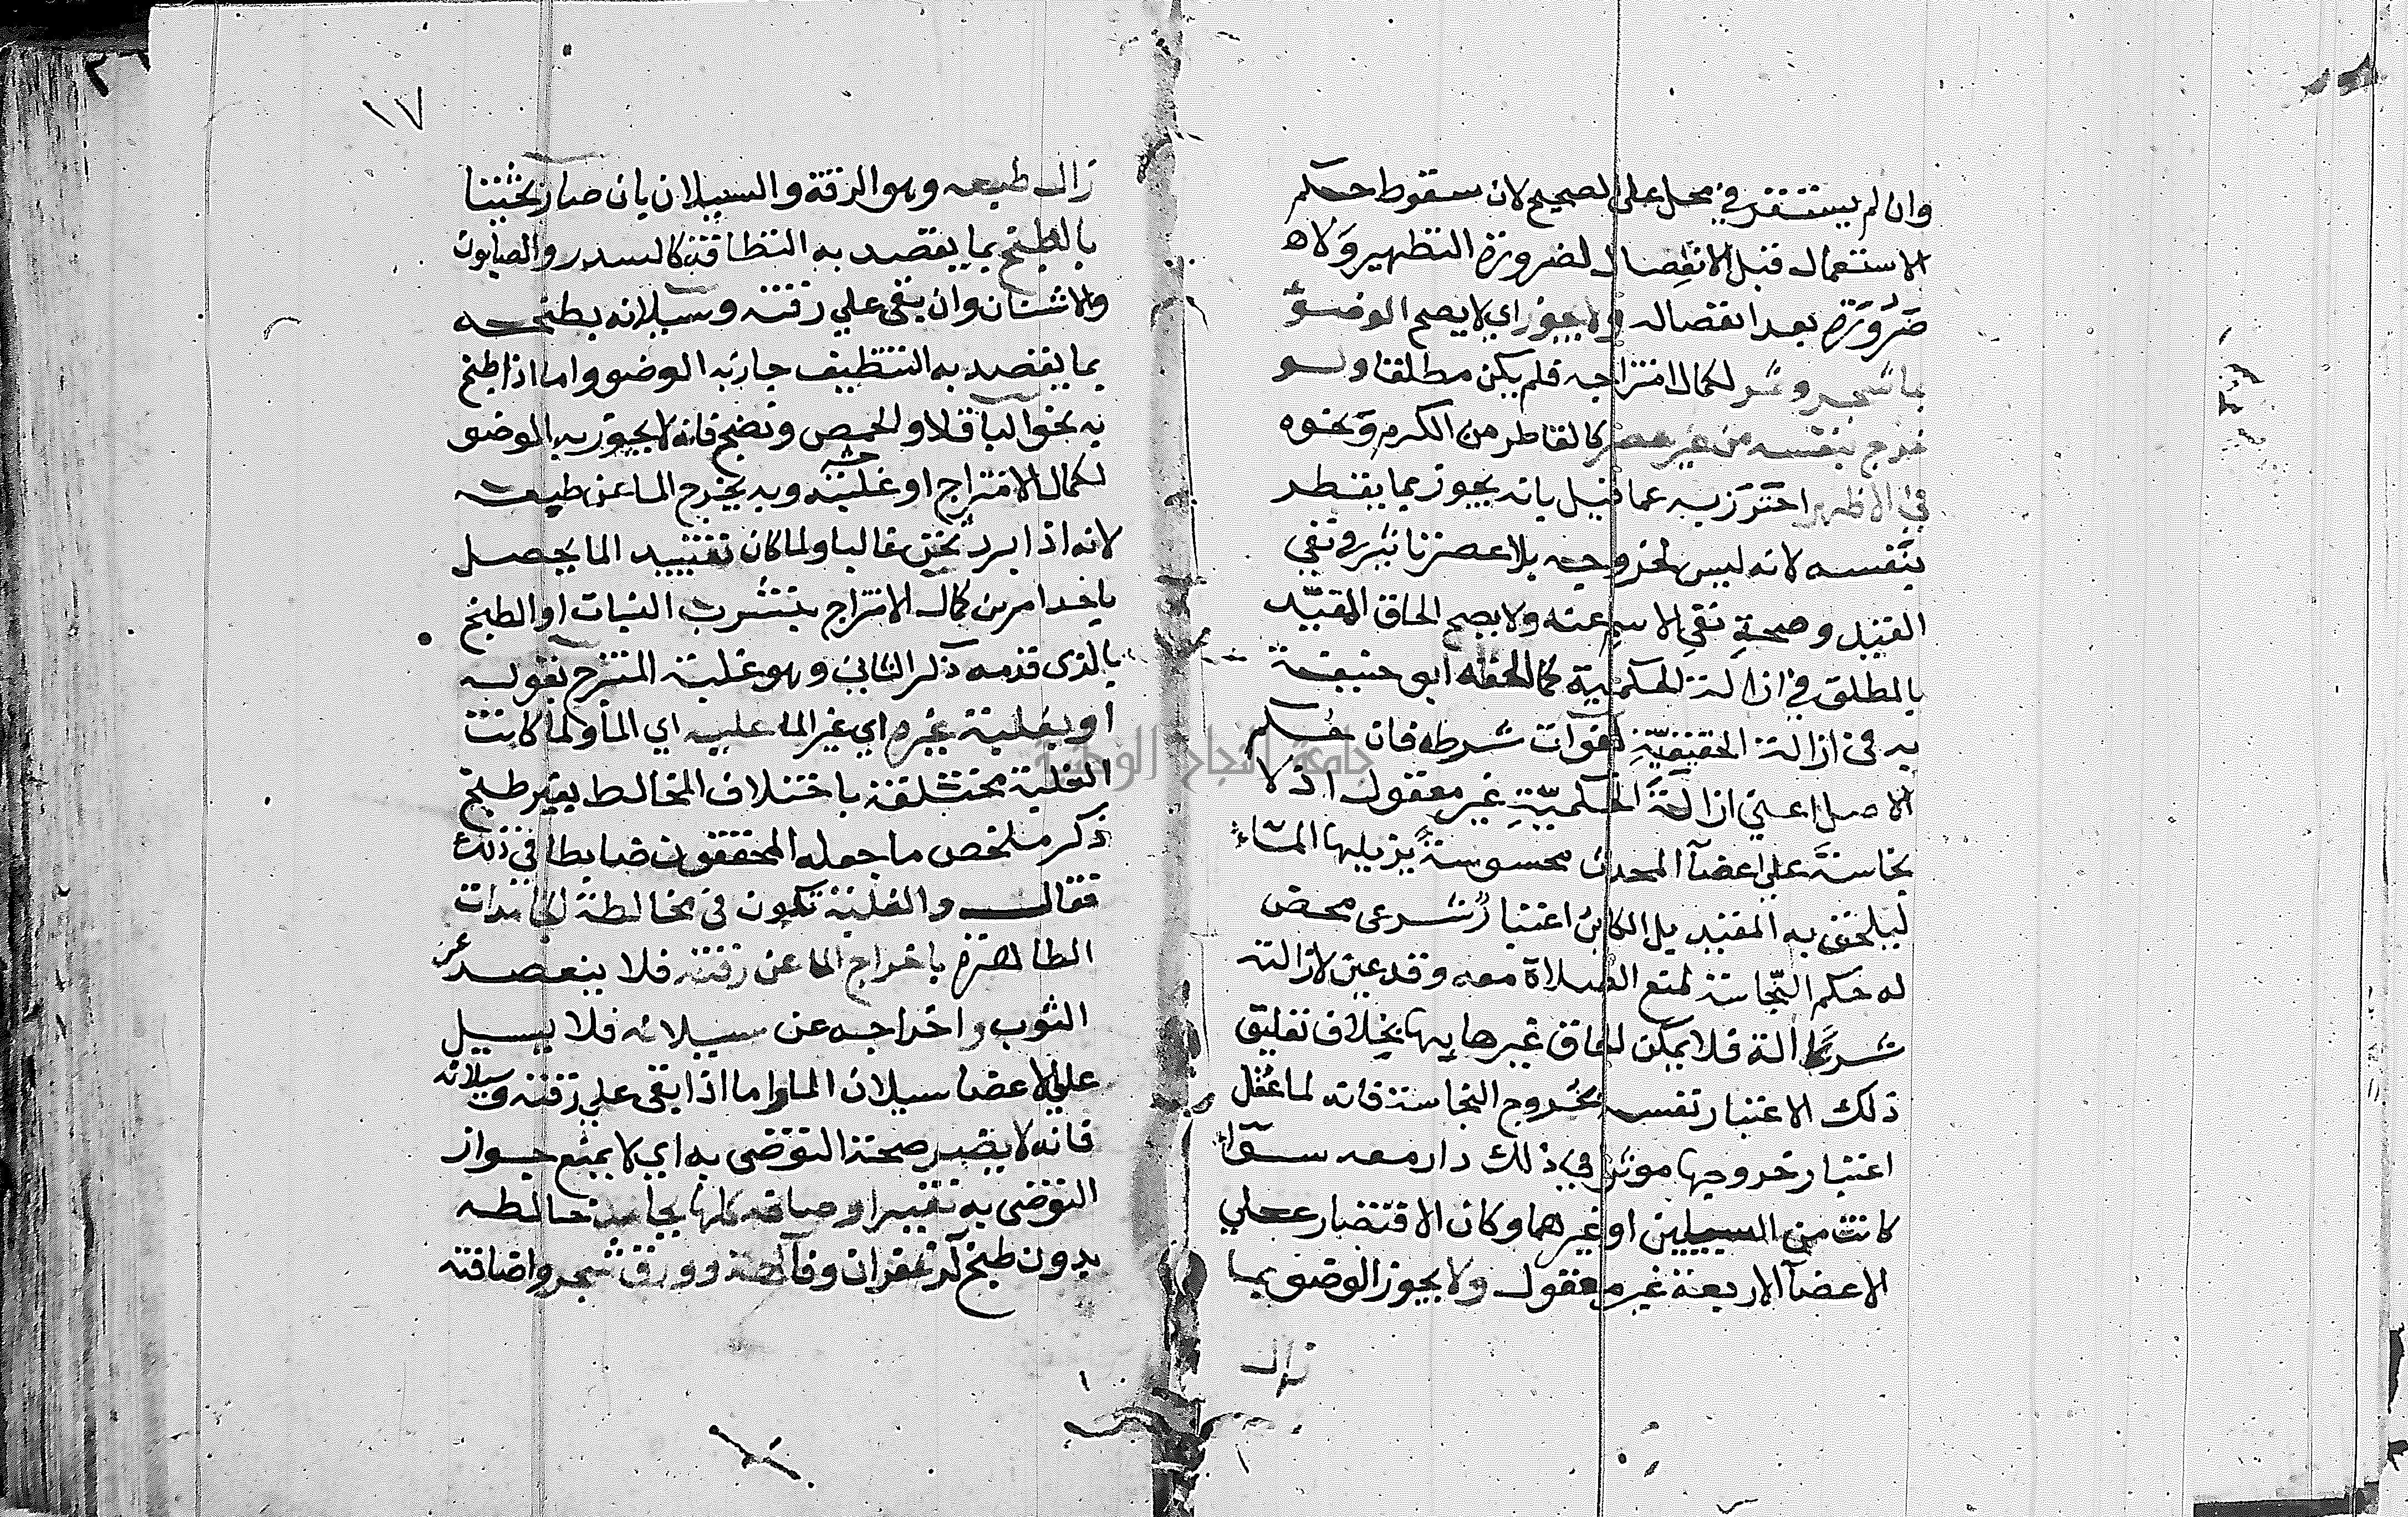 وان لم يستقر في محل على الصحيح لان سقوط حكم
الاستعمال قبل الانفصال لضرورة التطهير ولا
ضرورة بعد انفصاله ولا يجوز اي لا يصح الوضو
بما شجر وثمر لكمال امتزاجه فلم يكن مطلقا ولو
خرج بنفسه من غير عصر كالقاطر من الكرم ونحوه
في الاظهر احترز به عما قيل بانه يجوز بما يقطر
بنفسه لانه ليس لخروجه بلا عصر تاثير في نفي
القيد وصحة نفي الاسم عنه ولا يصح الحاق المقيد
بالمطلق في ازالة الحكمية كما الحقه ابو حنيفة
به في ازالة الحقيقية لفوات شرطه فان حكم
الاصل اعني ازالة الحكمية غير معقول اذ لا
نجاسة على اعضا المحدث محسوسة يزيلها الماء
ليلحق به المقيد بل الكائن اعتبار شرعي محض
له حكم النجاسة لمنع الصلاة معه وقد عين لازالته
شرعا الة فلا يمكن الحاق غيرها بها بخلاف تعليق
ذلك الاعتبار نفسه بخروج النجاسة فانه لما عقل
اعتبار خروجها موثرا في ذلك دار معه سوا
كانت من السبيلين او غيرهما وكان الاقتصار على
الاعضا الاربعة غير معقول ولا يجوز الوضو بما
زال
١٧
زال طبعه وهو الرقة والسيلان بان صار ثخينا
بالطبخ بما يقصد به النظافة كالسدر والصابون
والاشنان وان بقي على رقته وسيلانه بطبخه
بما يقصد به التنظيف جاز به الوضو واما اذا طبخ
به نحو الباقلا والحمص ونضج فانه لا يجوز به الوضو
لكمال الامتزاج او غلبته وبه يخرج الما عن طبعه
لانه اذا برد ثخن غالبا ولما كان تقييد الما يحصل
باحد امرين كمال الامتزاج بتشرب النبات او الطبخ
بالذي قدمه ذكر الثاني وهو غلبة الممتزج بقوله
او بغلبة غيره اي غير الما عليه اي الما ولما كانت
الغلبة مختلفة باختلاف المخالط بغير طبخ
ذكر ملخص ما جعله المحققون ضابطا في ذلك
فقال والغلبة تكون في مخالطة الجامدات
الطاهرة باخراج الما عن رقته فلا ينعصر عن
الثوب واخراجه عن سيلانه فلا يسيل
على الاعضا سيلان الما واما اذا بقي على رقته وسيلانه
فانه لا يضر صحة التوضي به اي لا يمنع جواز
التوضي به تغير اوصافه كلها بجامد خالطه
بدون طبخ كزعفران وفاكهة وورق شجر واضافته